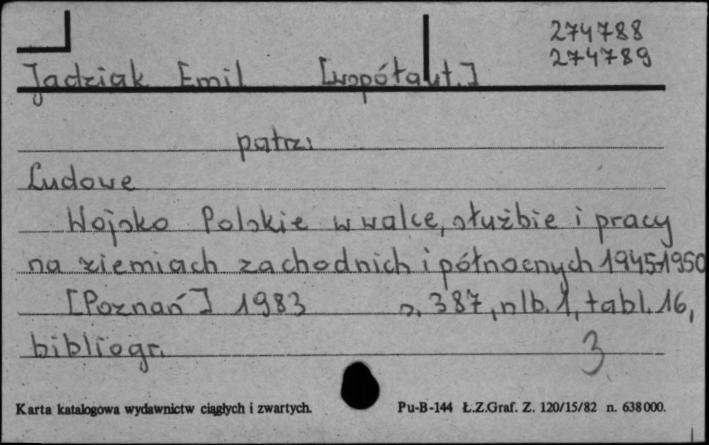 274788
274789
Jadziak Emil [współaut.]
patrz:
Ludowe
Wojsko Polskie w walce, służbie i pracy
na ziemiach zachodnich i północnych 1945-1950
[Poznań] 1983 s. 387, nlb. 1, tabl. 16,
bibliogr. 3
Karta katalogowa wydawnictw ciągłych i zwartych. Pu-B-144 Ł.Z.Graf. Z. 120/15/82 n. 638000.